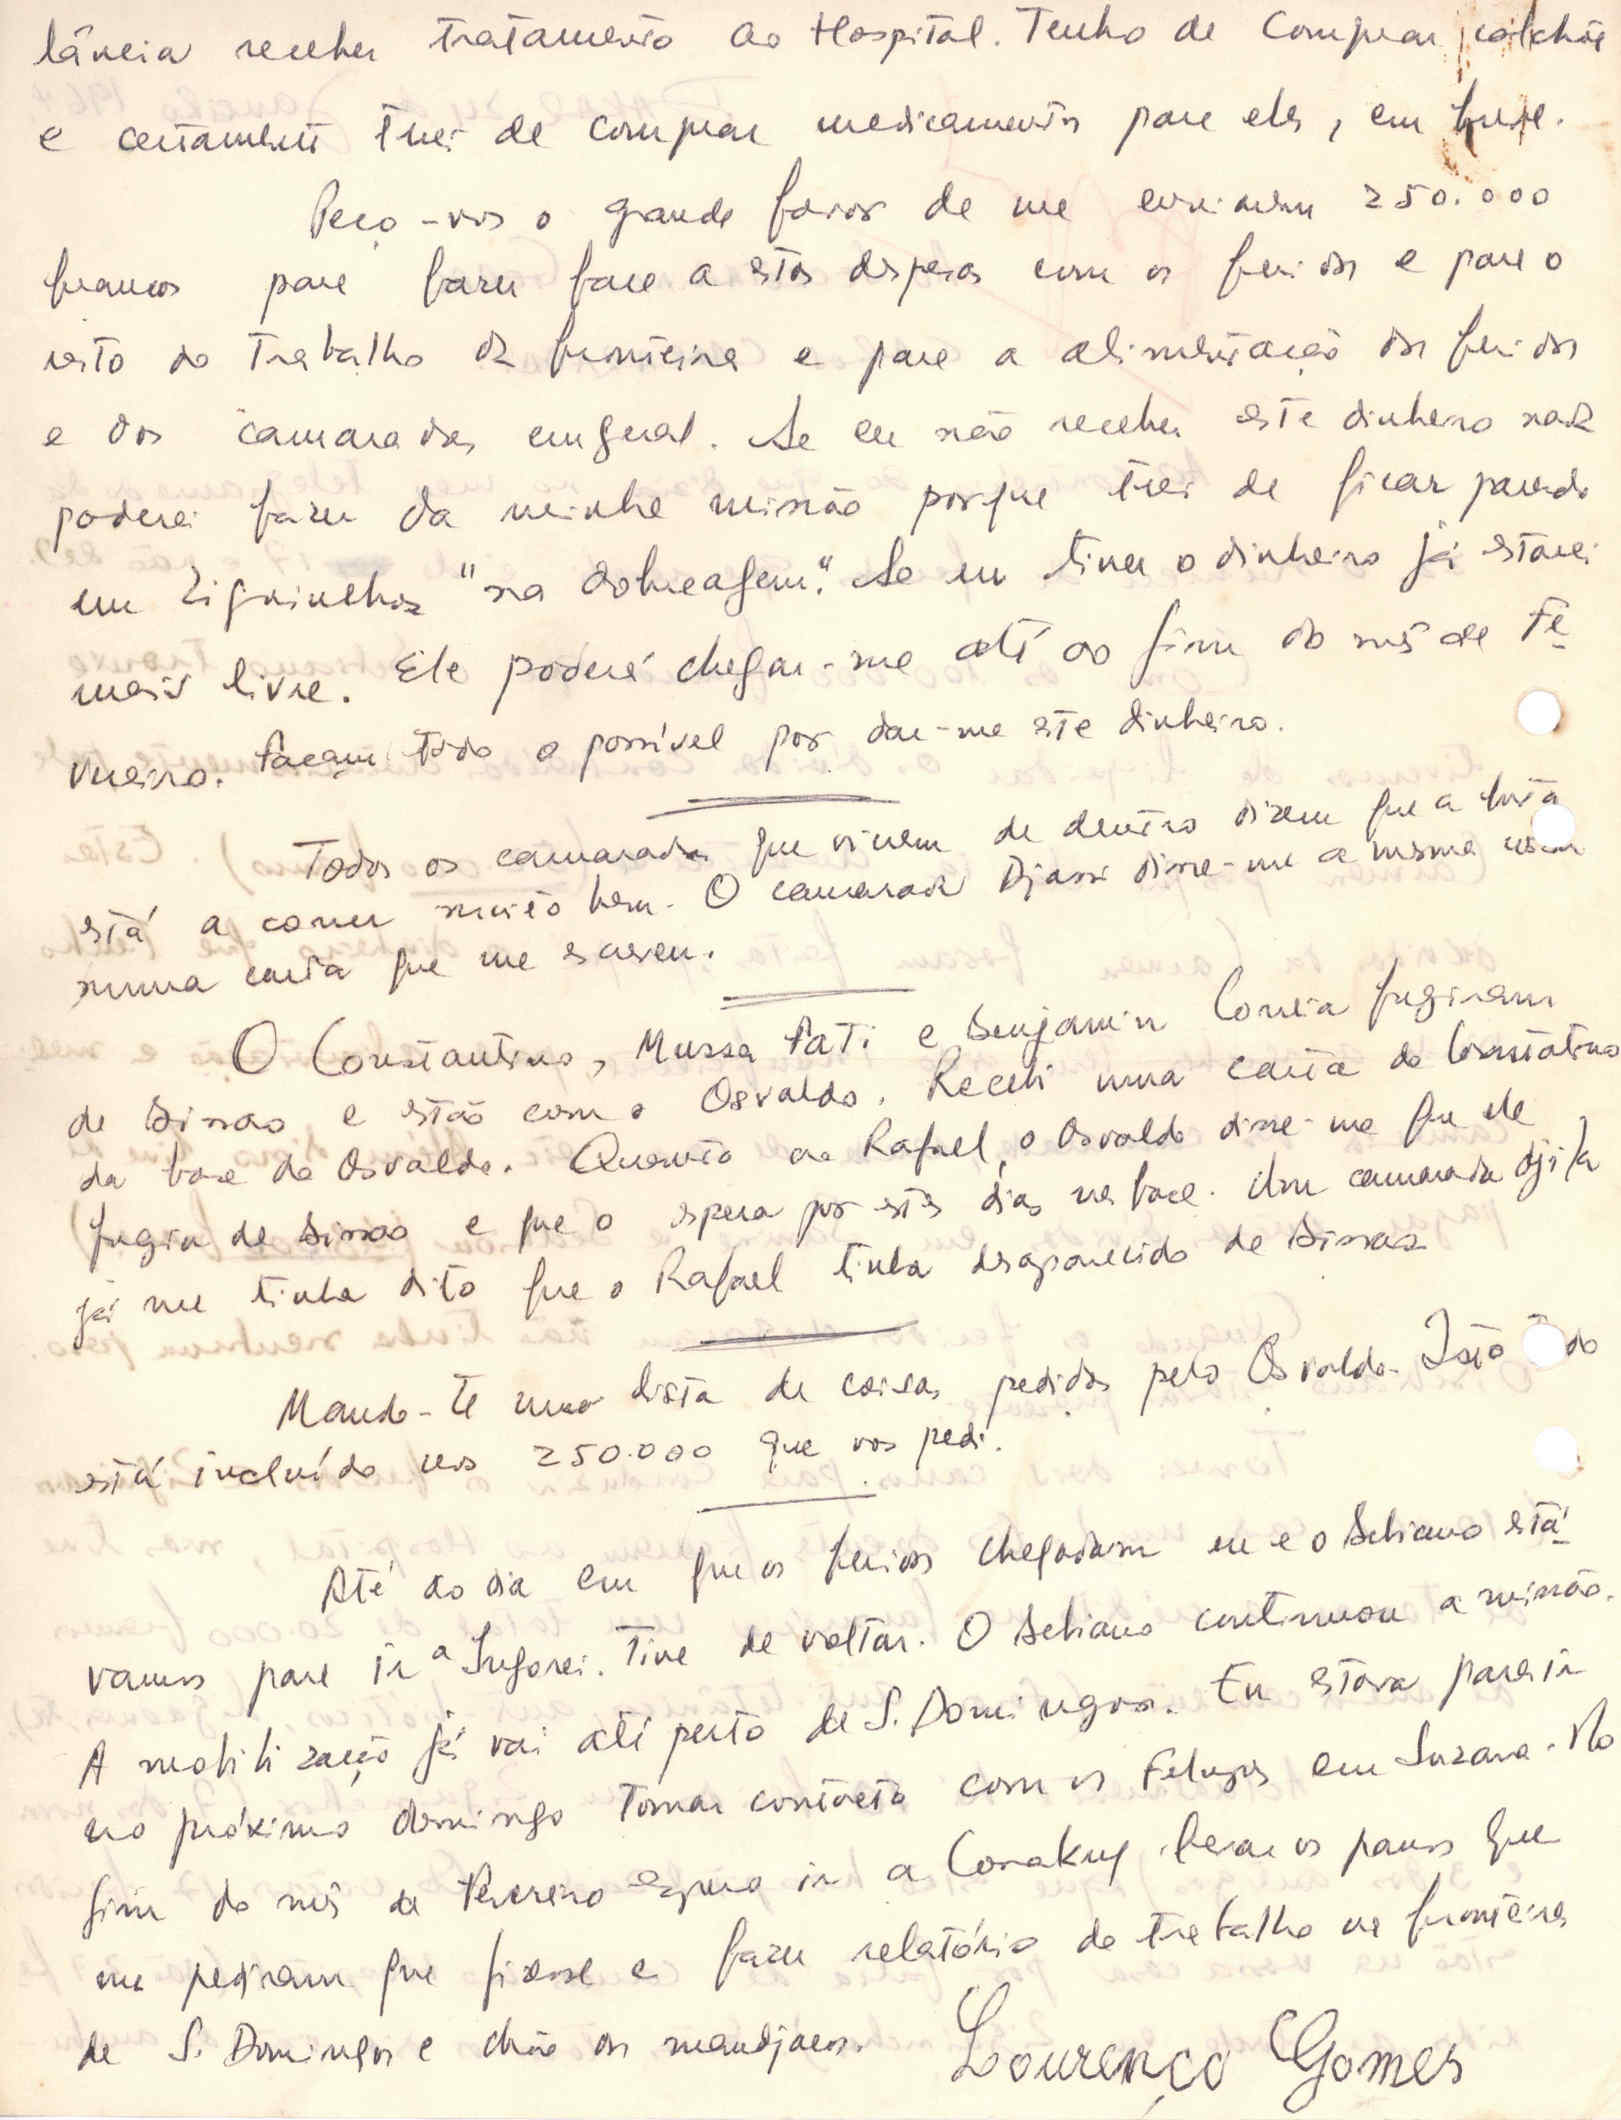 lância receber tratamento ao Hospital. Tenho de comprar colchões
e certamente terei de comprar medicamentos para eles, em breve.
Peço-vos o grande favor de me enviarem 250.000
francos para fazer face a estas despesas com os feridos e para o
resto do trabalho da fronteira e para a alimentação dos feridos
e dos camaradas em geral. Se eu não receber este dinheiro nada
poderei fazer da minha missão porque terei de ficar parado
em Ziguinchor "na dobreagem". Se eu tiver o dinheiro já estarei
mais livre. Ele poderá chegar-me até ao fim do mês de Fe-
vreiro. Façam todo o possível por dar-me este dinheiro.
Todos os camaradas que vieram de dentro dizem que a luta
está a correr muito bem. O camarada Djassi disse-me a mesma coisa
numa carta que me escreveu.
O Constantino, Mussa Fati e Benjamin Correia fugiram
de Bissao e estão com o Osvaldo. Recebi uma carta do Constatino
da base do Osvaldo. Quanto ao Rafael, o Osvaldo disse-me que ele
fugiu de Bissao e que o espera por estes dias na base. Um camarada
já me tinha dito que o Rafael tinha desaparecido de Bissao.
Mando-te uma lista de coisas pedidas pelo Osvaldo. Isto
está incluído nos 250.000 que vos pedi.
Até ao dia em que os feridos chegaram eu e o Sebiano está-
vamos para ir a Ingorei. Tive de voltar. O Sebiano continuou a missão.
A mobilização já vai até perto de S. Domingos. Eu estava para ir
no próximo domingo tomar contacto com os Felupes em Suzana. No
fim do mês de Fevereiro espero ir a Conakry levar os panos que
me pediram que fizesse e fazer relatório do trabalho na fronteira
de S. Domingos e chão dos mandjacos.
Lourenço Gomes